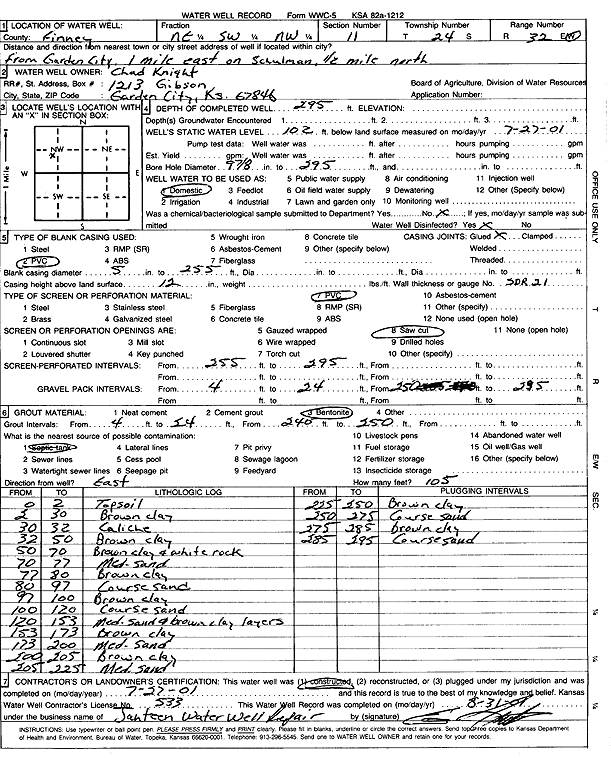 WATER WELL RECORD Form WWC-5 KSA 82a-1212
1 LOCATION OF WATER WELL: Fraction Section Number Township Number Range Number
County: Finney NE ¼ SW ¼ NW ¼ 11 T 24 S R 32 E/W
Distance and direction from nearest town or city street address of well if located within city?
From Garden City, 1 mile east on Schulman, 1/2 mile north
2 WATER WELL OWNER: Chad Knight
RR#, St. Address, Box # : 1213 Gibson Board of Agriculture, Division of Water Resources
City, State, ZIP Code : Garden City, Ks. 67846 Application Number:
3 LOCATE WELL'S LOCATION WITH AN "X" IN SECTION BOX:
N
NW NE
X
W E
SW SE
S
1 Mile
4 DEPTH OF COMPLETED WELL 295 ft. ELEVATION:
Depth(s) Groundwater Encountered 1. ft. 2. ft. 3. ft.
WELL'S STATIC WATER LEVEL 102 ft. below land surface measured on mo/day/yr 7-27-01
Pump test data: Well water was ft. after hours pumping gpm
Est. Yield gpm: Well water was ft. after hours pumping gpm
Bore Hole Diameter 9 7/8 in. to 295 ft., and in. to ft.
WELL WATER TO BE USED AS: 5 Public water supply 8 Air conditioning 11 Injection well
1 Domestic 3 Feedlot 6 Oil field water supply 9 Dewatering 12 Other (Specify below)
2 Irrigation 4 Industrial 7 Lawn and garden only 10 Monitoring well
Was a chemical/bacteriological sample submitted to Department? Yes No X ; If yes, mo/day/yr sample was submitted
Water Well Disinfected? Yes X No
5 TYPE OF BLANK CASING USED: 5 Wrought iron 8 Concrete tile CASING JOINTS: Glued X Clamped
1 Steel 3 RMP (SR) 6 Asbestos-Cement 9 Other (specify below) Welded
2 PVC 4 ABS 7 Fiberglass Threaded
Blank casing diameter 5 in. to 255 ft., Dia in. to ft., Dia in. to ft.
Casing height above land surface 12 in., weight lbs./ft. Wall thickness or gauge No. SDR 21
TYPE OF SCREEN OR PERFORATION MATERIAL: 7 PVC 10 Asbestos-cement
1 Steel 3 Stainless steel 5 Fiberglass 8 RMP (SR) 11 Other (specify)
2 Brass 4 Galvanized steel 6 Concrete tile 9 ABS 12 None used (open hole)
SCREEN OR PERFORATION OPENINGS ARE: 5 Gauzed wrapped 8 Saw cut 11 None (open hole)
1 Continuous slot 3 Mill slot 6 Wire wrapped 9 Drilled holes
2 Louvered shutter 4 Key punched 7 Torch cut 10 Other (specify)
SCREEN-PERFORATED INTERVALS: From 255 ft. to 295 ft., From ft. to ft.
From ft. to ft., From ft. to ft.
GRAVEL PACK INTERVALS: From 4 ft. to 24 ft., From 250 ft. to 295 ft.
From ft. to ft., From ft. to ft.
6 GROUT MATERIAL: 1 Neat cement 2 Cement grout 3 Bentonite 4 Other
Grout Intervals: From 4 ft. to 24 ft., From 240 ft. to 250 ft., From ft. to ft.
What is the nearest source of possible contamination: 10 Livestock pens 14 Abandoned water well
1 Septic tank 4 Lateral lines 7 Pit privy 11 Fuel storage 15 Oil well/Gas well
2 Sewer lines 5 Cess pool 8 Sewage lagoon 12 Fertilizer storage 16 Other (specify below)
3 Watertight sewer lines 6 Seepage pit 9 Feedyard 13 Insecticide storage
Direction from well? East How many feet? 105
FROM TO LITHOLOGIC LOG FROM TO PLUGGING INTERVALS
0 2 Topsoil 225 250 Brown clay
2 30 Brown clay 250 275 Course sand
30 32 Caliche 275 285 Brown clay
32 50 Brown clay 285 295 Course sand
50 70 Brown clay & white rock
70 77 Med. sand
77 80 Brown clay
80 97 Course sand
97 100 Brown clay
100 120 Course sand
120 153 Med. Sand & brown clay layers
153 173 Brown clay
173 200 Med. Sand
200 205 Brown clay
205 225 Med. Sand
7 CONTRACTOR'S OR LANDOWNER'S CERTIFICATION: This water well was (1) constructed, (2) reconstructed, or (3) plugged under my jurisdiction and was
completed on (mo/day/year) 7-27-01 and this record is true to the best of my knowledge and belief. Kansas
Water Well Contractor's License No. 533 This Water Well Record was completed on (mo/day/yr) 8-31-01
under the business name of Santeen Water Well Repair by (signature)
INSTRUCTIONS: Use typewriter or ball point pen. PLEASE PRESS FIRMLY and PRINT clearly. Please fill in blanks, underline or circle the correct answers. Send top three copies to Kansas Department
of Health and Environment, Bureau of Water, Topeka, Kansas 66620-0001. Telephone: 913-296-5545. Send one to WATER WELL OWNER and retain one for your records.
OFFICE USE ONLY
T
R
E/W
SEC.
¼
¼
¼